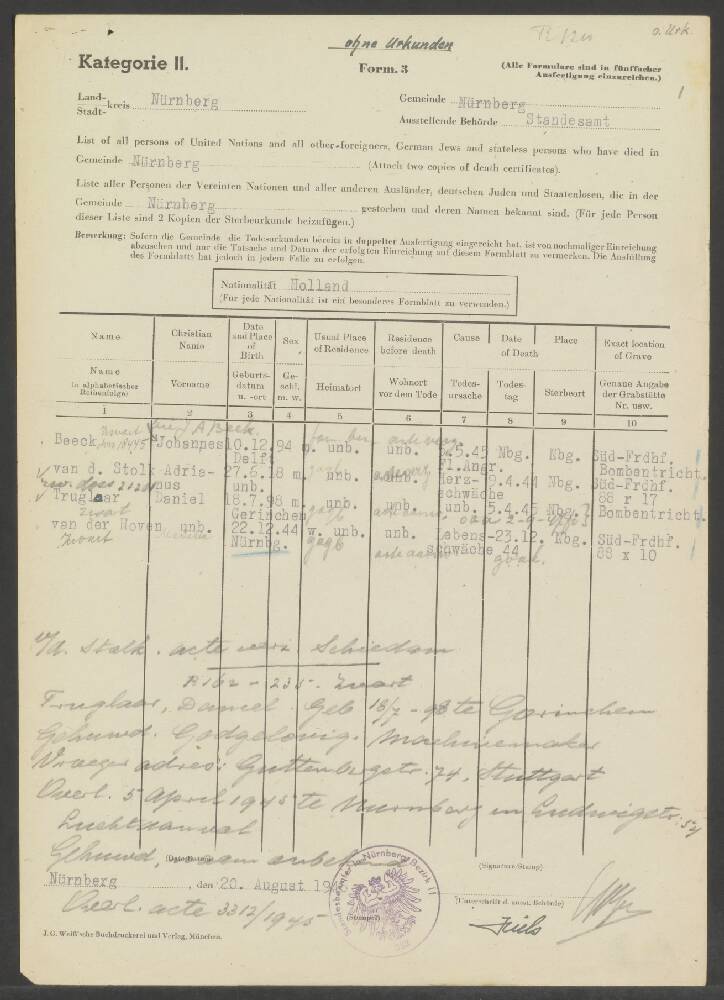 ohne Urkunden
o. Urk.
Kategorie II.
Form. 3
(Alle Formulare sind in fünffacher
Ausfertigung einzureichen.)
Land-
Stadt- kreis Nürnberg
Gemeinde Nürnberg
Ausstellende Behörde Standesamt
List of all persons of United Nations and all other foreigners, German Jews and stateless persons who have died in
Gemeinde Nürnberg (Attach two copies of death certificates).
Liste aller Personen der Vereinten Nationen und aller anderen Ausländer, deutschen Juden und Staatenlosen, die in der
Gemeinde Nürnberg gestorben und deren Namen bekannt sind. (Für jede Person
dieser Liste sind 2 Kopien der Sterbeurkunde beizufügen.)
Bemerkung: Sofern die Gemeinde die Todesurkunden bereits in doppelter Ausfertigung eingereicht hat, ist von nochmaliger Einreichung
abzusehen und nur die Tatsache und Datum der erfolgten Einreichung auf diesem Formblatt zu vermerken. Die Ausfüllung
des Formblatts hat jedoch in jedem Falle zu erfolgen.
Nationalität Holland
(Für jede Nationalität ist ein besonderes Formblatt zu verwenden.)
Name Christian Name Date and Place of Birth Sex Usual Place of Residence Residence before death Cause Date of Death Place Exact location of Grave
Name (in alphabetischer Reihenfolge) Vorname Geburts-datum u. -ort Ge-schl. m. w. Heimatort Wohnort vor dem Tode Todes-ursache Todes-tag Sterbeort Genaue Angabe der Grabstätte Nr. usw.
1 2 3 4 5 6 7 8 9 10
Beeck Johannes 10.12.94 m. unb. unb. 5.45 Nbg. Nbg. Süd-Frdhf.
Delft Fl.Angr. Bombentricht.
van d. Stolk Adria- 27.6.18 m. unb. unb. Herz- 9.4.44 Nbg. Süd-Frdhf.
nus unb. schwäche 88 r 17
Truglaar Daniel 18.7.98 m. unb. unb. unb. 5.4.45 Nbg. Bombentricht.
Zwart Gerinchen
van der Hoven unb. 22.12.44 w. unb. unb. Lebens- 23.12. Nbg. Süd-Frdhf.
Zwart Nürnbg. schwäche 44 88 x 10
v/d. Stolk. acte verz. Schiedam
R162 - 235. Zwart
Truglaar, Daniel. Geb 18/7 - 98 te Gorinchem
Gehuwd. Godgelovig. Machinemaker
Vroeger adres: Guttenbergstr. 74. Stuttgart
Overl. 5 April 1945 te Nurnberg in Ludwigstr. 54
Luchtaanval
Gehuwd, naam onbekend
(Date/Datum)
(Signature/Stamp)
Nürnberg, den 20. August 194
(Stempel)
(Unterschrift d. ausst. Behörde)
Overl. acte 3312/1945
Standesbeamter in Nürnberg Bezirk II
J. G. Weiß'sche Buchdruckerei und Verlag, München.